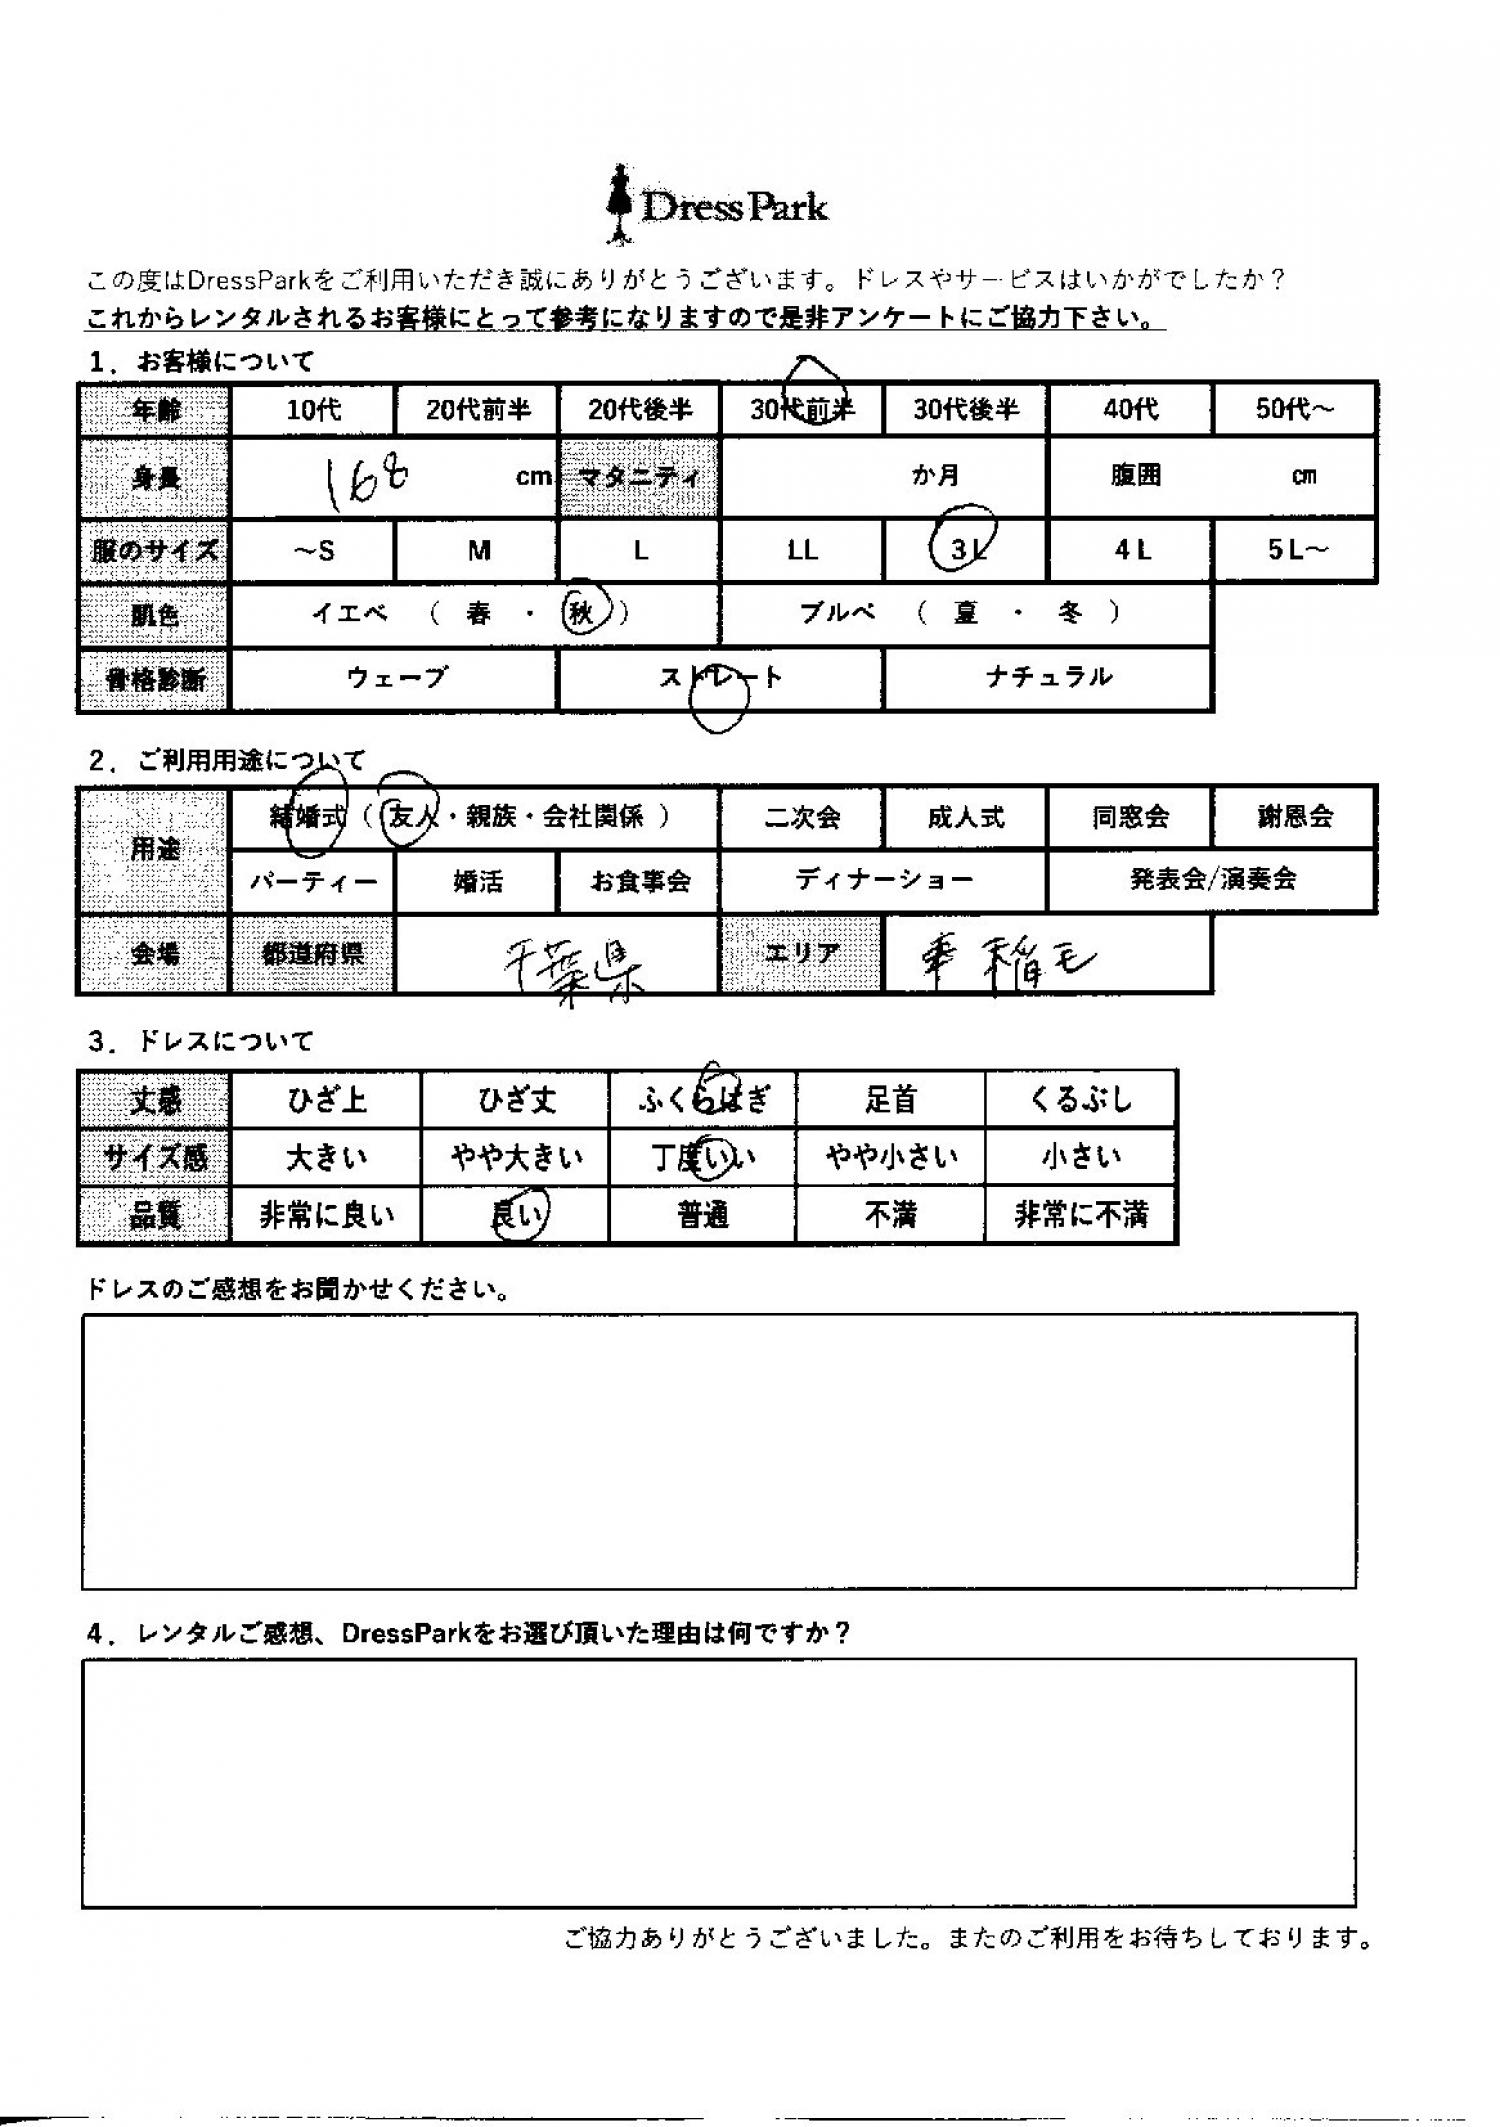 DressPark
この度はDressParkをご利用いただき誠にありがとうございます。ドレスやサービスはいかがでしたか？
これからレンタルされるお客様にとって参考になりますので是非アンケートにご協力下さい。
1．お客様について
年齢 10代 20代前半 20代後半 30代前半 30代後半 40代 50代～
身長 168 cm マタニティ か月 腹囲 cm
服のサイズ ～S M L LL 3L 4L 5L～
肌色 イエベ （ 春 ・ 秋 ） ブルベ （ 夏 ・ 冬 ）
骨格診断 ウェーブ ストレート ナチュラル
2．ご利用用途について
用途 結婚式（ 友人・親族・会社関係 ） 二次会 成人式 同窓会 謝恩会
パーティー 婚活 お食事会 ディナーショー 発表会/演奏会
会場 都道府県 千葉県 エリア 稲毛
3．ドレスについて
丈感 ひざ上 ひざ丈 ふくらはぎ 足首 くるぶし
サイズ感 大きい やや大きい 丁度いい やや小さい 小さい
品質 非常に良い 良い 普通 不満 非常に不満
ドレスのご感想をお聞かせください。
4．レンタルご感想、DressParkをお選び頂いた理由は何ですか？
ご協力ありがとうございました。またのご利用をお待ちしております。